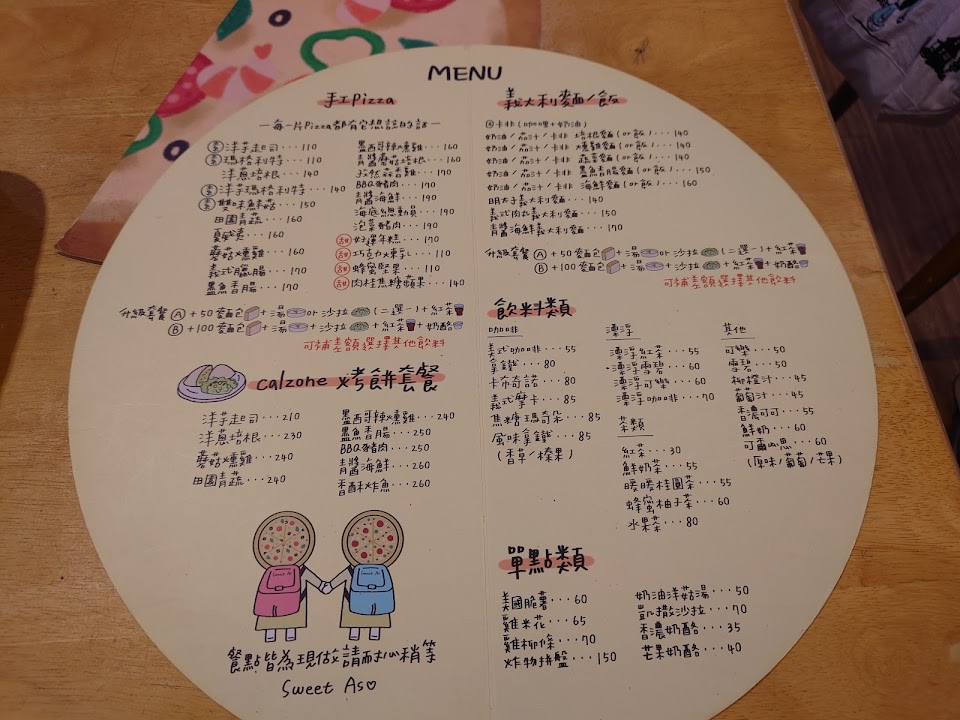 MENU
手工Pizza
—每一片Pizza都有它想說的話—
素 洋芋起司···110
素 瑪格利特···110
洋蔥培根···140
素 洋芋瑪格利特···140
素 雙味魚菇···150
田園青蔬···160
夏威夷···160
蘑菇燻雞···160
義式臘腸···170
墨魚香腸···170
墨西哥辣燻雞···160
青醬蘑菇培根···160
孜然蒜香雞···170
BBQ豬肉···170
青醬海鮮···190
海底總動員···190
泡菜豬肉···190
甜 好運年糕···170
甜 巧克力燻乳···110
甜 蜂蜜堅果···110
甜 肉桂焦糖蘋果···140
升級套餐 A +50 麵包+湯or沙拉(二選一)+紅茶
B +100麵包+湯+沙拉+紅茶+奶酪
可補差額選擇其他飲料
calzone 烤餅套餐
洋芋起司···210
洋蔥培根···230
蘑菇燻雞···240
田園青蔬···240
墨西哥辣燻雞···240
墨魚香腸···250
BBQ豬肉···250
青醬海鮮···260
香酥炸魚···260
餐點皆為現做請耐心稍等
Sweet As♡
義大利麵/飯
卡非(咖哩+奶油)
奶油/茄汁/卡非 培根麵(or飯)···140
奶油/茄汁/卡非 燻雞麵(or飯)···140
奶油/茄汁/卡非 蔬菜麵(or飯)···140
奶油/茄汁/卡非 墨魚香腸麵(or飯)···150
奶油/茄汁/卡非 海鮮麵(or飯)···160
明太子義大利麵···140
義式肉丸義大利麵···150
青醬海鮮義大利麵···170
升級套餐 A +50 麵包+湯or沙拉(二選一)+紅茶
B +100麵包+湯+沙拉+紅茶+奶酪
可補差額選擇其他飲料
飲料類
咖啡
義式咖啡···55
拿鐵···80
卡布奇諾···80
義式摩卡···85
焦糖瑪奇朵···85
風味拿鐵···85
(香草/榛果)
漂浮
漂浮紅茶···55
漂浮雪碧···60
漂浮可樂···60
漂浮咖啡···70
茶類
紅茶···30
鮮奶茶···55
暖暖桂圓茶···55
蜂蜜柚子茶···60
水果茶···80
其他
可樂···50
雪碧···50
柳橙汁···45
葡萄汁···45
香濃可可···55
鮮奶···60
可爾必思···60
(原味/葡萄/芒果)
單點類
美國脆薯···60
雞米花···65
雞柳條···70
炸物拼盤···150
奶油洋菇湯···50
凱撒沙拉···70
香濃奶酪···35
芒果奶酪···40